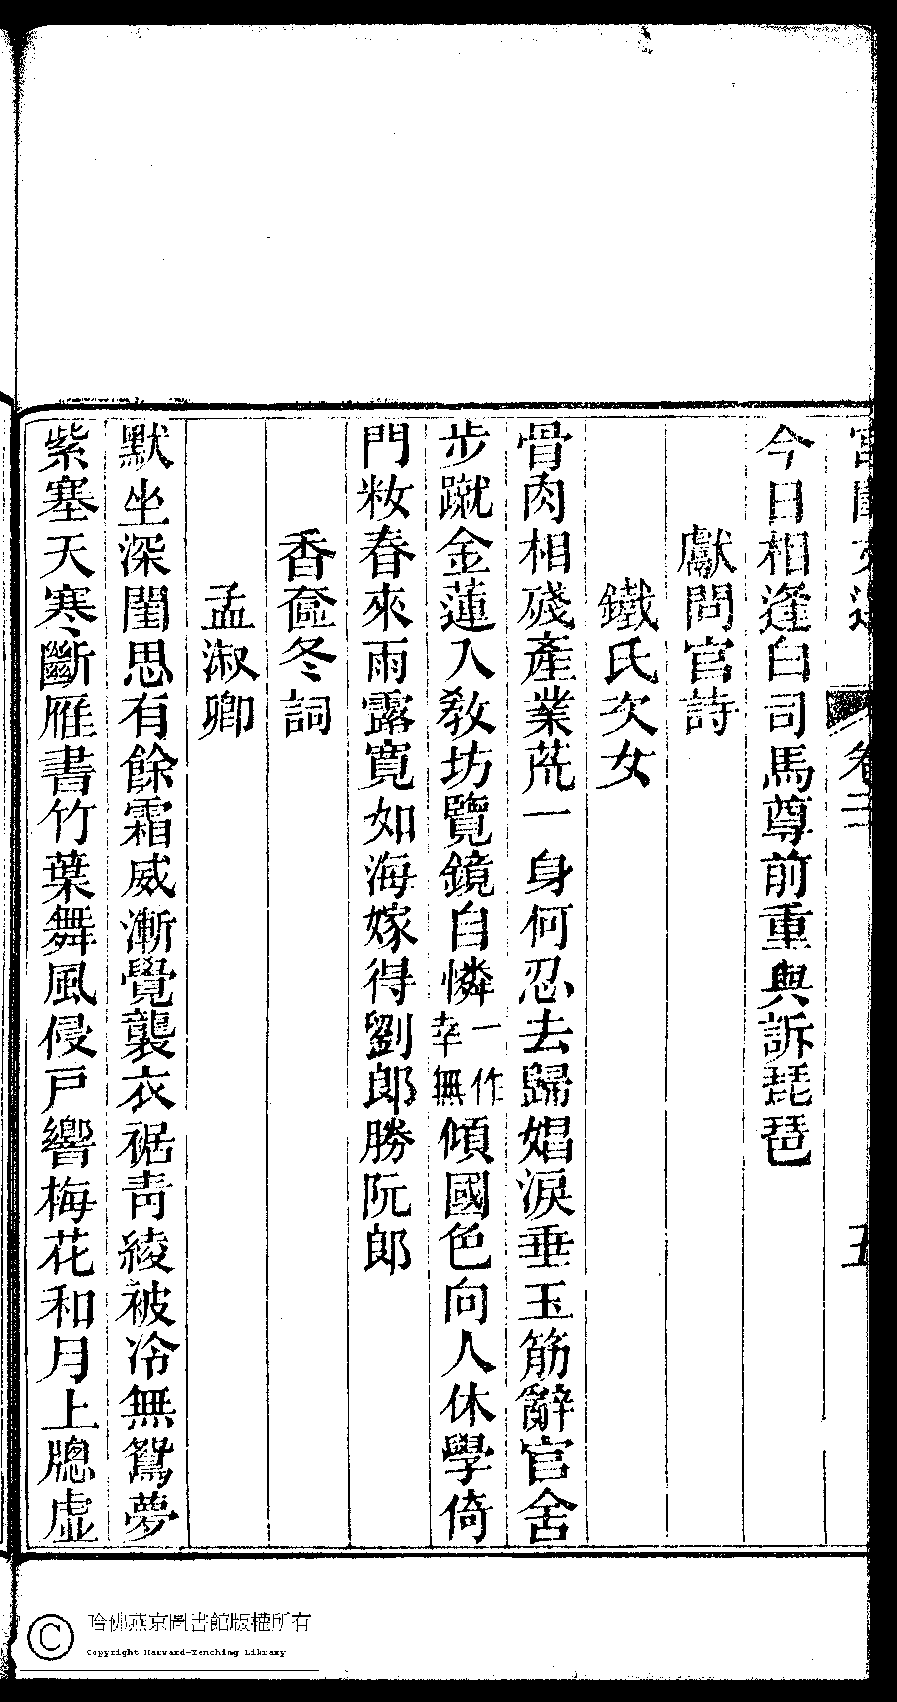 宮閨文選 卷二 五
今日相逢白司馬尊前重與訴琵琶
獻問官詩
鐵氏次女
骨肉相殘產業荒一身何忍去歸娼淚垂玉筯辭官舍
步蹴金蓮入敎坊覽鏡自憐一作幸無傾國色向人休學倚
門粧春來雨露寬如海嫁得劉郎勝阮郎
香奩冬詞
孟淑卿
默坐深閨思有餘霜威漸覺襲衣裾靑綾被冷無鴛夢
紫塞天寒斷雁書竹葉舞風侵戸響梅花和月上牎虛
哈佛燕京圖書館版權所有
Copyright Harvard-Yenching Library